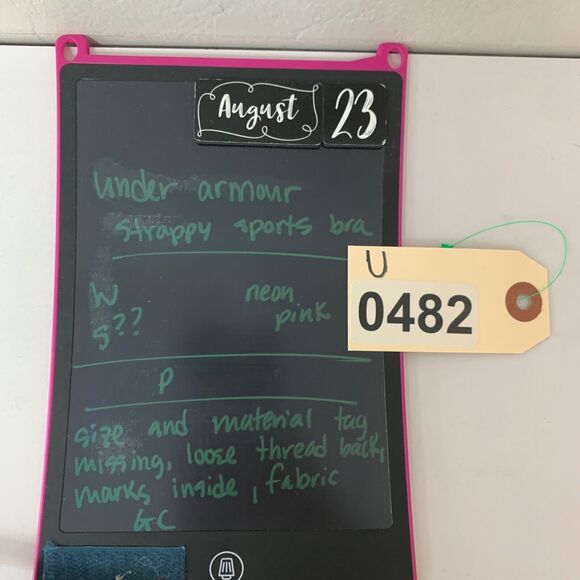 August 23
under armour
strappy sports bra
U
0482
W neon
S?? pink
P
size and material tag
missing, loose thread back,
marks inside, fabric
GC